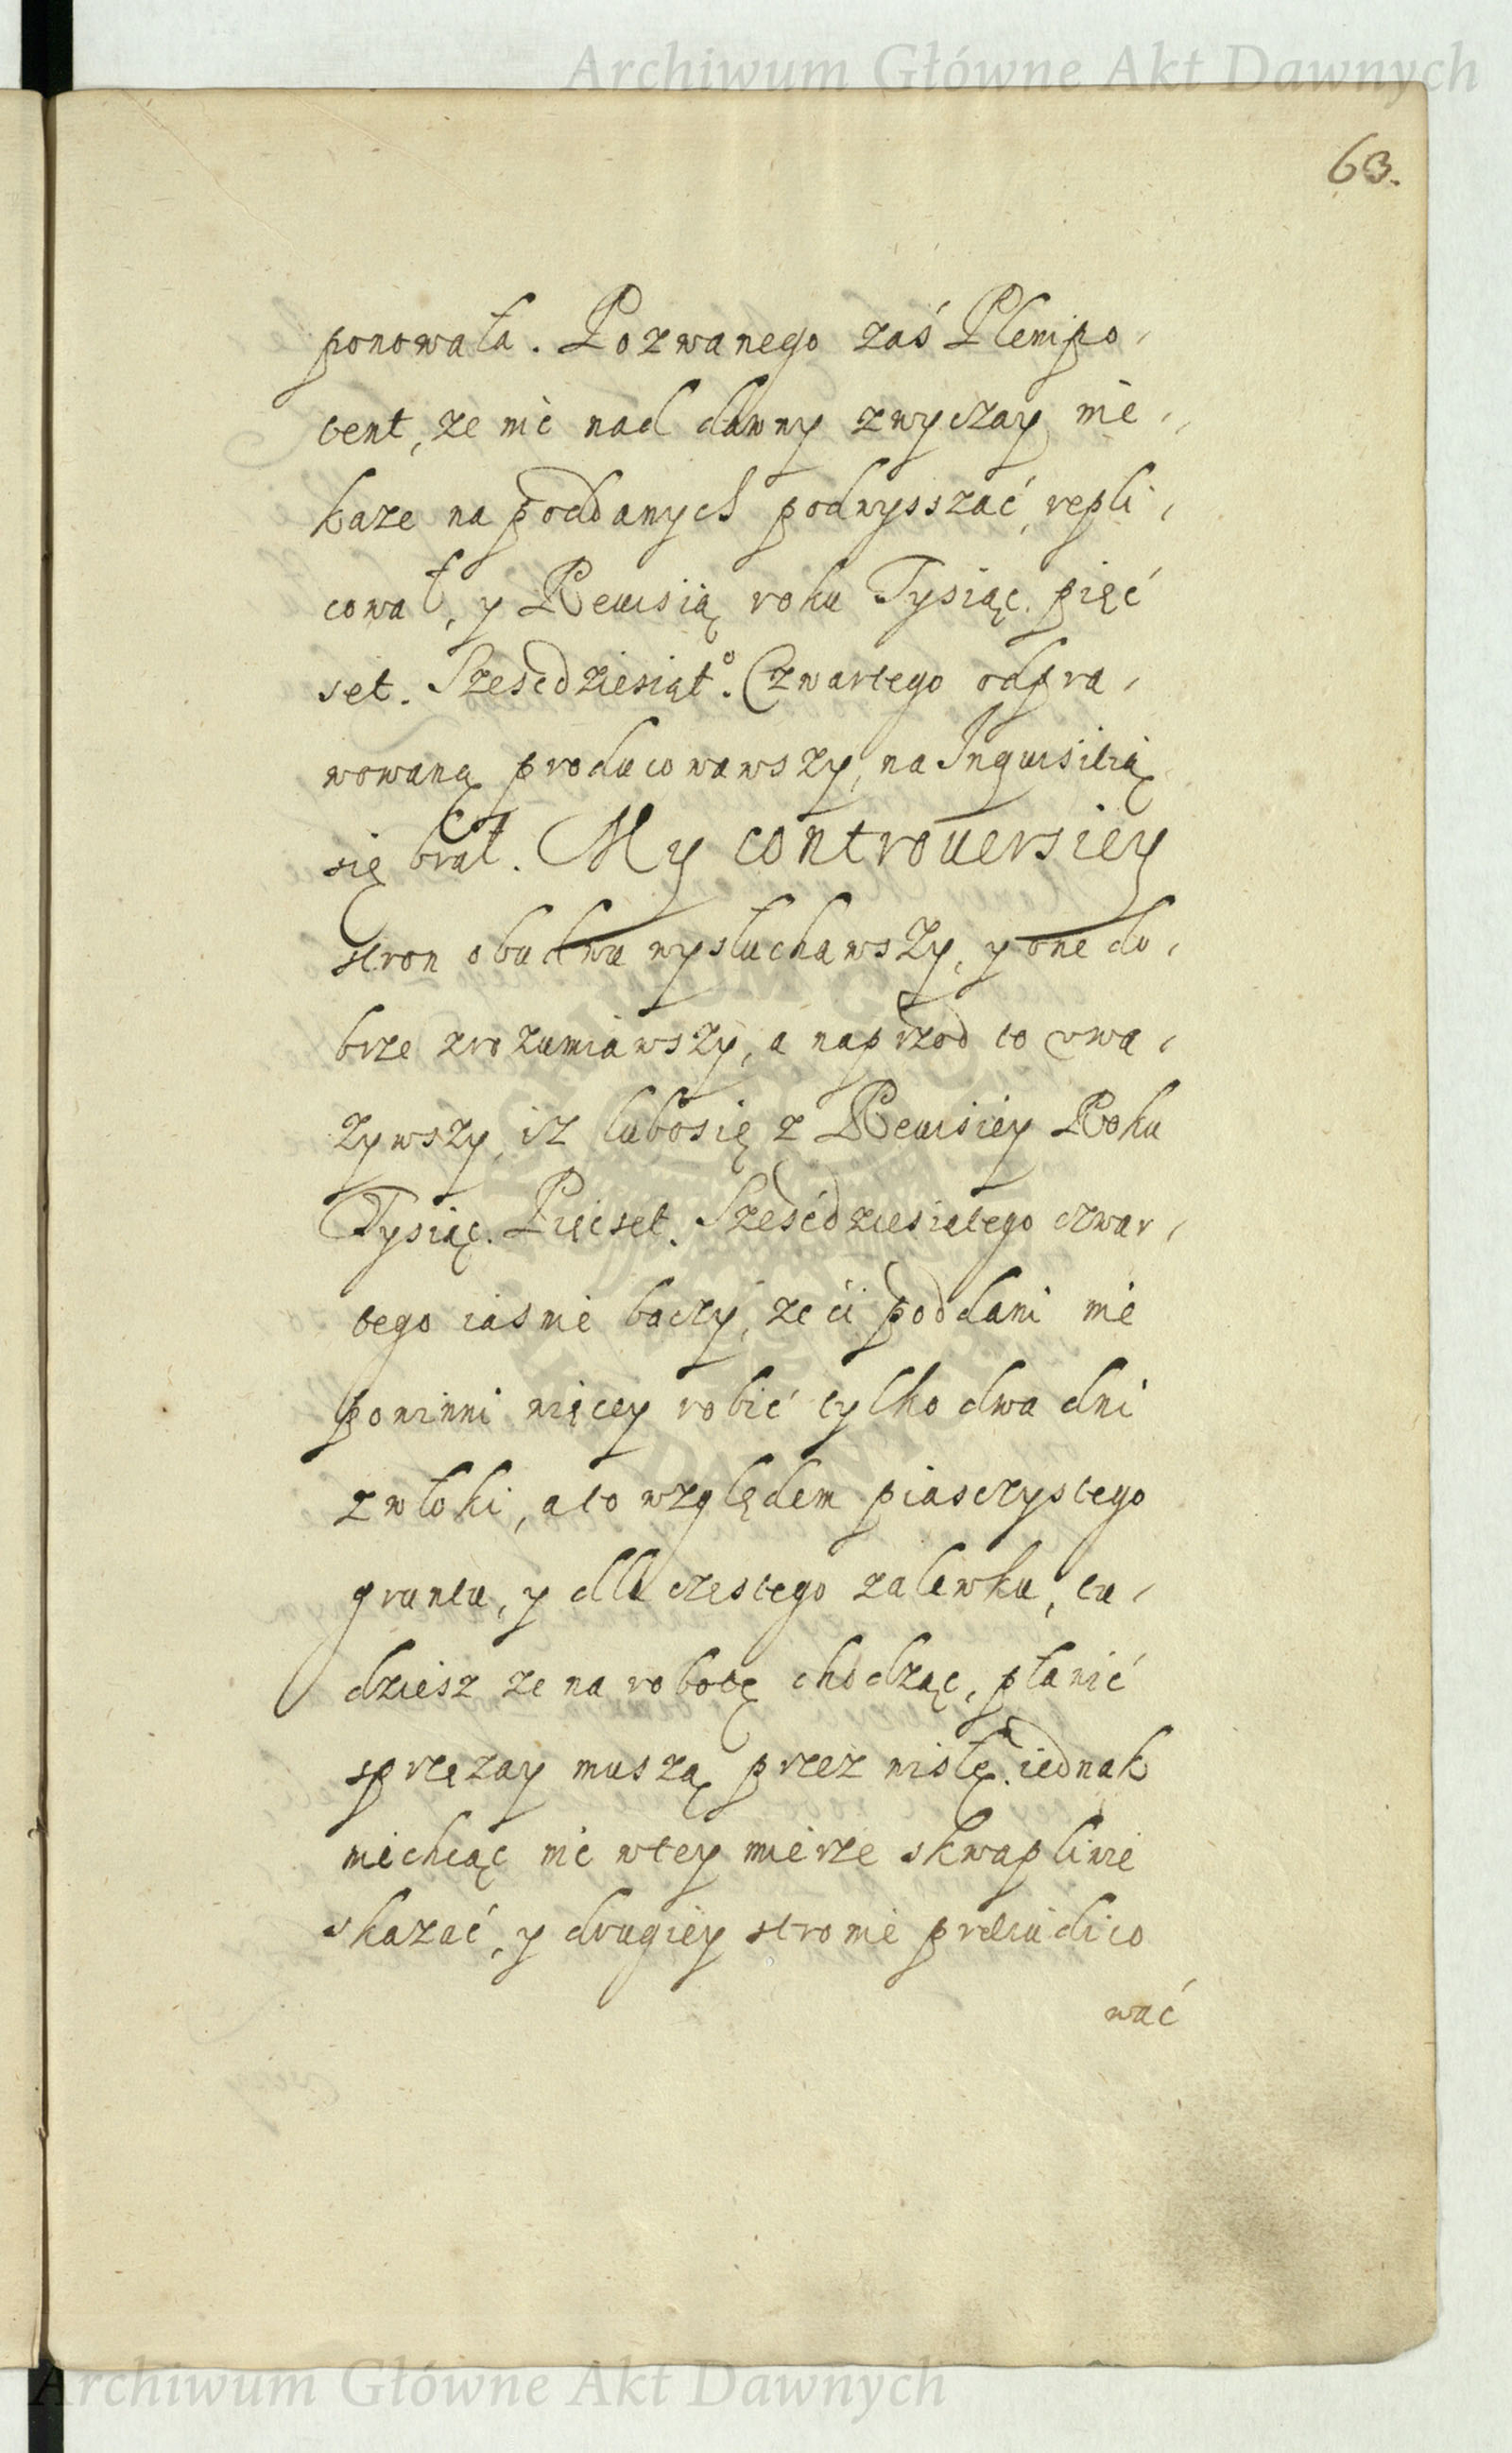 Archiwum Główne Akt Dawnych
63.
ponowała. Pozwanego zaś Plenipo,
tent, ze nic nad dawny zwyczay nie,
kaze na poddanych podwysszać, repli,
cował, y Rewisią roku Tysiąc. pięć
set. Sześćdziesiąt°. Czwartego odpra,
wowaną producowawszy, na Inquisitią
się brał. My controuersiey
stron obudwu wysłuchawszy, y one do,
brze zrozumiawszy, a naprzod to vwa,
zywszy, iz lubo się z Rewisiey Roku
Tysiąc. Pięćset. Sześćdziesiątego czwar,
tego iasnie baczy, ze ci poddani nie
powinni więcey robić tylko dwa dni
z włoki, a to względem piasczystego
gruntu, y dla częstego zalewku, tu,
dziesz ze na robotę chodząc, pławić
sprzęzay muszą przez wisłę. iednak
niechcąc nic w tey mierze skwapliwie
skazać, y drugiey stronie praeiudico
wać
Archiwum Główne Akt Dawnych